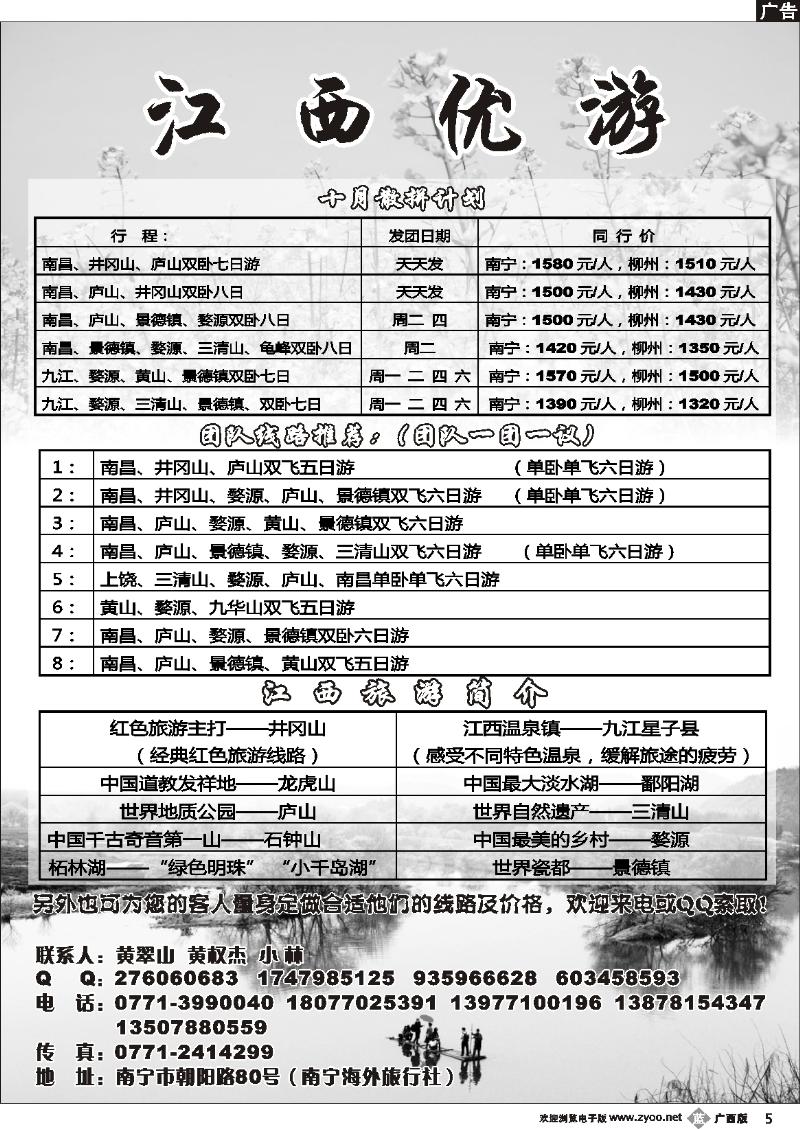 广告
江西优游
十月散拼计划
行 程： 发团日期 同 行 价
南昌、井冈山、庐山双卧七日游 天天发 南宁：1580 元/人，柳州：1510 元/人
南昌、庐山、井冈山双卧八日 天天发 南宁：1500 元/人，柳州：1430 元/人
南昌、庐山、景德镇、婺源双卧八日 周二 四 南宁：1500 元/人，柳州：1430 元/人
南昌、景德镇、婺源、三清山、龟峰双卧八日 周二 南宁：1420 元/人，柳州：1350 元/人
九江、婺源、黄山、景德镇双卧七日 周一 二 四 六 南宁：1570 元/人，柳州：1500 元/人
九江、婺源、三清山、景德镇、双卧七日 周一 二 四 六 南宁：1390 元/人，柳州：1320 元/人
团队线路推荐：（团队一团一议）
1： 南昌、井冈山、庐山双飞五日游 （单卧单飞六日游）
2： 南昌、井冈山、婺源、庐山、景德镇双飞六日游 （单卧单飞六日游）
3： 南昌、庐山、婺源、黄山、景德镇双飞六日游
4： 南昌、庐山、景德镇、婺源、三清山双飞六日游 （单卧单飞六日游）
5： 上饶、三清山、婺源、庐山、南昌单卧单飞六日游
6： 黄山、婺源、九华山双飞五日游
7： 南昌、庐山、婺源、景德镇双卧六日游
8： 南昌、庐山、景德镇、黄山双飞五日游
江西旅游简介
红色旅游主打——井冈山 江西温泉镇——九江星子县
（经典红色旅游线路） （感受不同特色温泉，缓解旅途的疲劳）
中国道教发祥地——龙虎山 中国最大淡水湖——鄱阳湖
世界地质公园——庐山 世界自然遗产——三清山
中国千古奇音第一山——石钟山 中国最美的乡村——婺源
柘林湖——“绿色明珠” “小千岛湖” 世界瓷都——景德镇
另外也可为您的客人量身定做合适他们的线路及价格，欢迎来电或QQ索取！
联系人：黄翠山 黄权杰 小林
Q Q：276060683 1747985125 935966628 603458593
电 话：0771-3990040 18077025391 13977100196 13878154347
13507880559
传 真：0771-2414299
地 址：南宁市朝阳路80号（南宁海外旅行社）
欢迎浏览电子版 www.zyoo.net 蓝 广西版 5